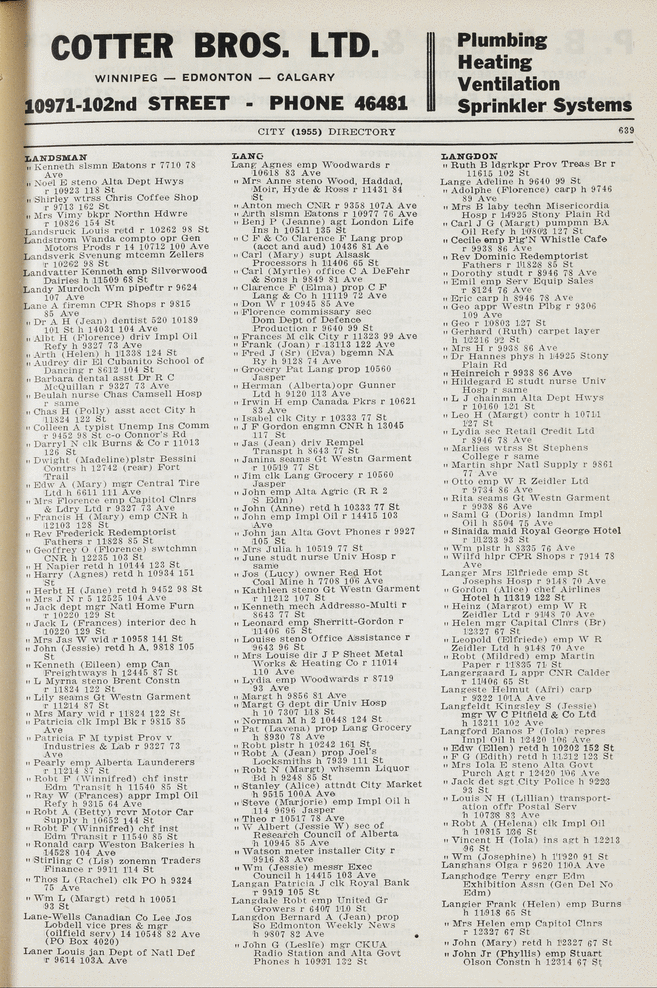 COTTER BROS. LTD.
WINNIPEG — EDMONTON — CALGARY
10971-102nd STREET - PHONE 46481
Plumbing
Heating
Ventilation
Sprinkler Systems
CITY (1955) DIRECTORY
639
LANDSMAN
" Kenneth slsmn Eatons r 7710 78
Ave
" Noel E steno Alta Dept Hwys
r 10923 118 St
" Shirley wtrss Chris Coffee Shop
r 9713 162 St
" Mrs Vimy bkpr Northn Hdwre
r 10826 154 St
Landsruck Louis retd r 10262 98 St
Landstrom Wanda compto opr Gen
Motors Prods r 14 10712 100 Ave
Landsverk Syenung mtcemn Zellers
r 10262 98 St
Landvatter Kenneth emp Silverwood
Dairies H 11509 68 St
Landy Murdoch Wm pipeftr r 9624
107 Ave
Lane A firemn CPR Shops r 9815
85 Ave
" Dr A H (Jean) dentist 520 10189
101 St h 14031 104 Ave
" Albt H (Florence) driv Impl Oil
Refy h 9327 73 Ave
" Arth (Helen) h 11338 124 St
" Audrey dir El Cubanito School of
Dancing r 8612 104 St
" Barbara dental asst Dr R C
McQuillan r 9327 73 Ave
" Beulah nurse Chas Camsell Hosp
r same
" Chas H (Polly) asst acct City h
11824 122 St
" Colleen A typist Unemp Ins Comm
r 9452 98 St c-o Connor's Rd
" Darryl N clk Burns & Co r 11013
126 St
" Dwight (Madeline) plstr Bessini
Contrs h 12742 (rear) Fort
Trail
" Edw A (Mary) mgr Central Tire
Ltd h 6611 111 Ave
" Mrs Florence emp Capitol Clnrs
& Ldry Ltd r 9327 73 Ave
" Francis H (Mary) emp CNR h
12103 128 St
" Rev Frederick Redemptorist
Fathers r 11828 85 St
" Geoffrey O (Florence) swtchmn
CNR h 12235 103 St
" H Napier retd h 10144 123 St
" Harry (Agnes) retd h 10934 151
St
" Herbt H (Jane) retd h 9452 98 St
" Mrs J N r 5 12525 104 Ave
" Jack dept mgr Natl Home Furn
r 10220 129 St
" Jack L (Frances) interior dec h
10220 129 St
" Mrs Jas W wid r 10958 141 St
" John (Jessie) retd h A, 9818 105
St
" Kenneth (Eileen) emp Can
Freightways h 12445 87 St
" L Myrna steno Brent Constn
r 11824 122 St
" Lily seams Gt Westn Garment
r 11214 87 St
" Mrs Mary wid r 11824 122 St
" Patricia clk Impl Bk r 9815 85
Ave
" Patricia F M typist Prov v
Industries & Lab r 9327 73
Ave
" Pearly emp Alberta Launderers
r 11214 87 St
" Robt F (Winnifred) chf instr
Edm Transit h 11540 85 St
" Ray W (Frances) appr Impl Oil
Refy h 9315 64 Ave
" Robt A (Betty) rcvr Motor Car
Supply h 10652 144 St
" Robt F (Winnifred) chf inst
Edm Transit r 11540 85 St
" Ronald carp Weston Bakeries h
14528 104 Ave
" Stirling C (Lis) zonemn Traders
Finance r 9911 114 St
" Thos L (Rachel) clk PO h 9324
75 Ave
" Wm L (Margt) retd h 10051
93 St
Lane-Wells Canadian Co Lee Jos
Lobdell vice pres & mgr
(oilfield serv) 14 10548 82 Ave
(PO Box 4020)
Laner Louis jan Dept of Natl Def
r 9614 103A Ave
LANG
Lang Agnes emp Woodwards r
10618 83 Ave
" Mrs Anne steno Wood, Haddad,
Moir, Hyde & Ross r 11431 84
St
" Anton mech CNR r 9358 107A Ave
" Arth slsmn Eatons r 10977 76 Ave
" Benj P (Jeanne) agt London Life
Ins h 10511 135 St
" C F & Co Clarence F Lang prop
(acct and aud) 10436 81 Ae
" Carl (Mary) supt Alsask
Processors h 11406 65 St
" Carl (Myrtle) office C A DeFehr
& Sons h 9849 81 Ave
" Clarence F (Elma) prop C F
Lang & Co h 11119 72 Ave
" Don W r 10945 85 Ave
" Florence commissary sec
Dom Dept of Defence
Production r 9640 99 St
" Frances M clk City r 11323 99 Ave
" Frank (Joan) r 13113 122 Ave
" Fred J (Sr) (Eva) bgemn NA
Ry h 9128 74 Ave
" Grocery Pat Lang prop 10560
Jasper
" Herman (Alberta) opr Gunner
Ltd h 9120 113 Ave
" Irwin H emp Canada Pkrs r 10621
83 Ave
" Isabel clk City r 10333 77 St
" J F Gordon engmn CNR h 13045
117 St
" Jas (Jean) driv Rempel
Transpt h 8643 77 St
" Janina seams Gt Westn Garment
r 10519 77 St
" Jim clk Lang Grocery r 10560
Jasper
" John emp Alta Agric (R R 2
S Edm)
" John (Anne) retd h 10333 77 St
" John emp Impl Oil r 14415 103
Ave
" John jan Alta Govt Phones r 9927
105 St
" Mrs Julia h 10519 77 St
" June studt nurse Univ Hosp r
same
" Jos (Lucy) owner Red Hot
Coal Mine h 7708 106 Ave
" Kathleen steno Gt Westn Garment
r 11212 107 St
" Kenneth mech Addresso-Multi r
8643 77 St
" Leonard emp Sherritt-Gordon r
11406 65 St
" Louise steno Office Assistance r
9643 96 St
" Mrs Louise dir J P Sheet Metal
Works & Heating Co r 11014
110 Ave
" Lydia emp Woodwards r 8719
93 Ave
" Margt h 9856 81 Ave
" Margt G dept dir Univ Hosp
h 10 7307 118 St
" Norman M h 2 10448 124 St
" Pat (Lavena) prop Lang Grocery
h 8930 78 Ave
" Robt plstr h 10242 161 St
" Robt A (Jean) prop Joel's
Locksmiths h 7939 111 St
" Robt N (Margt) whsemn Liquor
Bd h 9248 85 St
" Stanley (Alice) attndt City Market
h 9515 100A Ave
" Steve (Marjorie) emp Impl Oil h
114 9696 Jasper
" Theo r 10517 78 Ave
" W Albert (Jessie W) sec of
Research Council of Alberta
h 10945 85 Ave
" Watson meter installer City r
9916 83 Ave
" Wm (Jessie) messr Exec
Council h 14415 103 Ave
Langan Patricia J clk Royal Bank
r 9919 105 St
Langdale Robt emp United Gr
Growers r 6407 110 St
Langdon Bernard A (Jean) prop
So Edmonton Weekly News
h 9807 82 Ave
" John G (Leslie) mgr CKUA
Radio Station and Alta Govt
Phones h 10931 132 St
LANGDON
" Ruth B ldgrkpr Prov Treas Br r
11615 102 St
Lange Adeline h 9640 99 St
" Adolphe (Florence) carp h 9746
89 Ave
" Mrs B laby techn Misericordia
Hosp r 14925 Stony Plain Rd
" Carl J G (Margt) pumpmn BA
Oil Refy h 10803 127 St
" Cecile emp Pig'N Whistle Cafe
r 9938 86 Ave
" Rev Dominic Redemptorist
Fathers r 11828 85 St
" Dorothy studt r 8946 78 Ave
" Emil emp Serv Equip Sales
r 8124 76 Ave
" Eric carp r 8946 78 Ave
" Geo appr Westn Plbg r 9306
109 Ave
" Geo r 10803 127 St
" Gerhard (Ruth) carpet layer
h 12216 92 St
" Mrs H r 9938 86 Ave
" Dr Hannes phys h 14925 Stony
Plain Rd
" Heinreich r 9938 86 Ave
" Hildegard E studt nurse Univ
Hosp r same
" L J chainmn Alta Dept Hwys
r 10160 121 St
" Leo H (Margt) contr h 10711
127 St
" Lydia sec Retail Credit Ltd
r 8946 78 Ave
" Marlies wtrss St Stephens
College r same
" Martin shpr Natl Supply r 9861
77 Ave
" Otto emp W R Zeidler Ltd
r 9734 86 Ave
" Rita seams Gt Westn Garment
r 9938 86 Ave
" Saml G (Doris) landmn Impl
Oil h 8504 75 Ave
" Sinaida maid Royal George Hotel
r 10233 93 St
" Wm plstr h 8335 76 Ave
" Wilfd hlpr CPR Shops r 7914 78
Ave
Langer Mrs Elfriede emp St
Josephs Hosp r 9148 70 Ave
" Gordon (Alice) chef Airlines
Hotel h 11319 122 St
" Heinz (Margot) emp W R
Zeidler Ltd r 9148 70 Ave
" Helen mgr Capital Clnrs (Br)
12327 67 St
" Leopold (Elfriede) emp W R
Zeidler Ltd h 9148 70 Ave
" Robt (Mildred) emp Martin
Paper r 11835 71 St
Langergaard L appr CNR Calder
r 11406 65 St
Langeste Helmut (Afri) carp
r 9322 101A Ave
Langfeldt Kingsley S (Jessie)
mgr W C Pitfield & Co Ltd
h 13211 102 Ave
Langford Eanos P (Iola) repres
Impl Oil h 12420 106 Ave
" Edw (Ellen) retd h 10202 152 St
" F G (Edith) retd h 11212 123 St
" Mrs Iola E steno Alta Govt
Purch Agt r 12420 106 Ave
" Jack det sgt City Police h 9223
93 St
" Louis N H (Lillian) transport-
ation offr Postal Serv
h 10738 83 Ave
" Robt A (Helena) clk Impl Oil
h 10815 136 St
" Vincent H (Iola) ins agt h 12213
96 St
" Wm (Josephine) h 11920 91 St
Langhans Olga r 9620 110A Ave
Langhodge Terry engr Edm
Exhibition Assn (Gen Del No
Edm)
Langier Frank (Helen) emp Burns
h 11918 65 St
" Mrs Helen emp Capitol Clnrs
r 12327 67 St
" John (Mary) retd h 12327 67 St
" John Jr (Phyllis) emp Stuart
Olson Constn h 12314 67 St